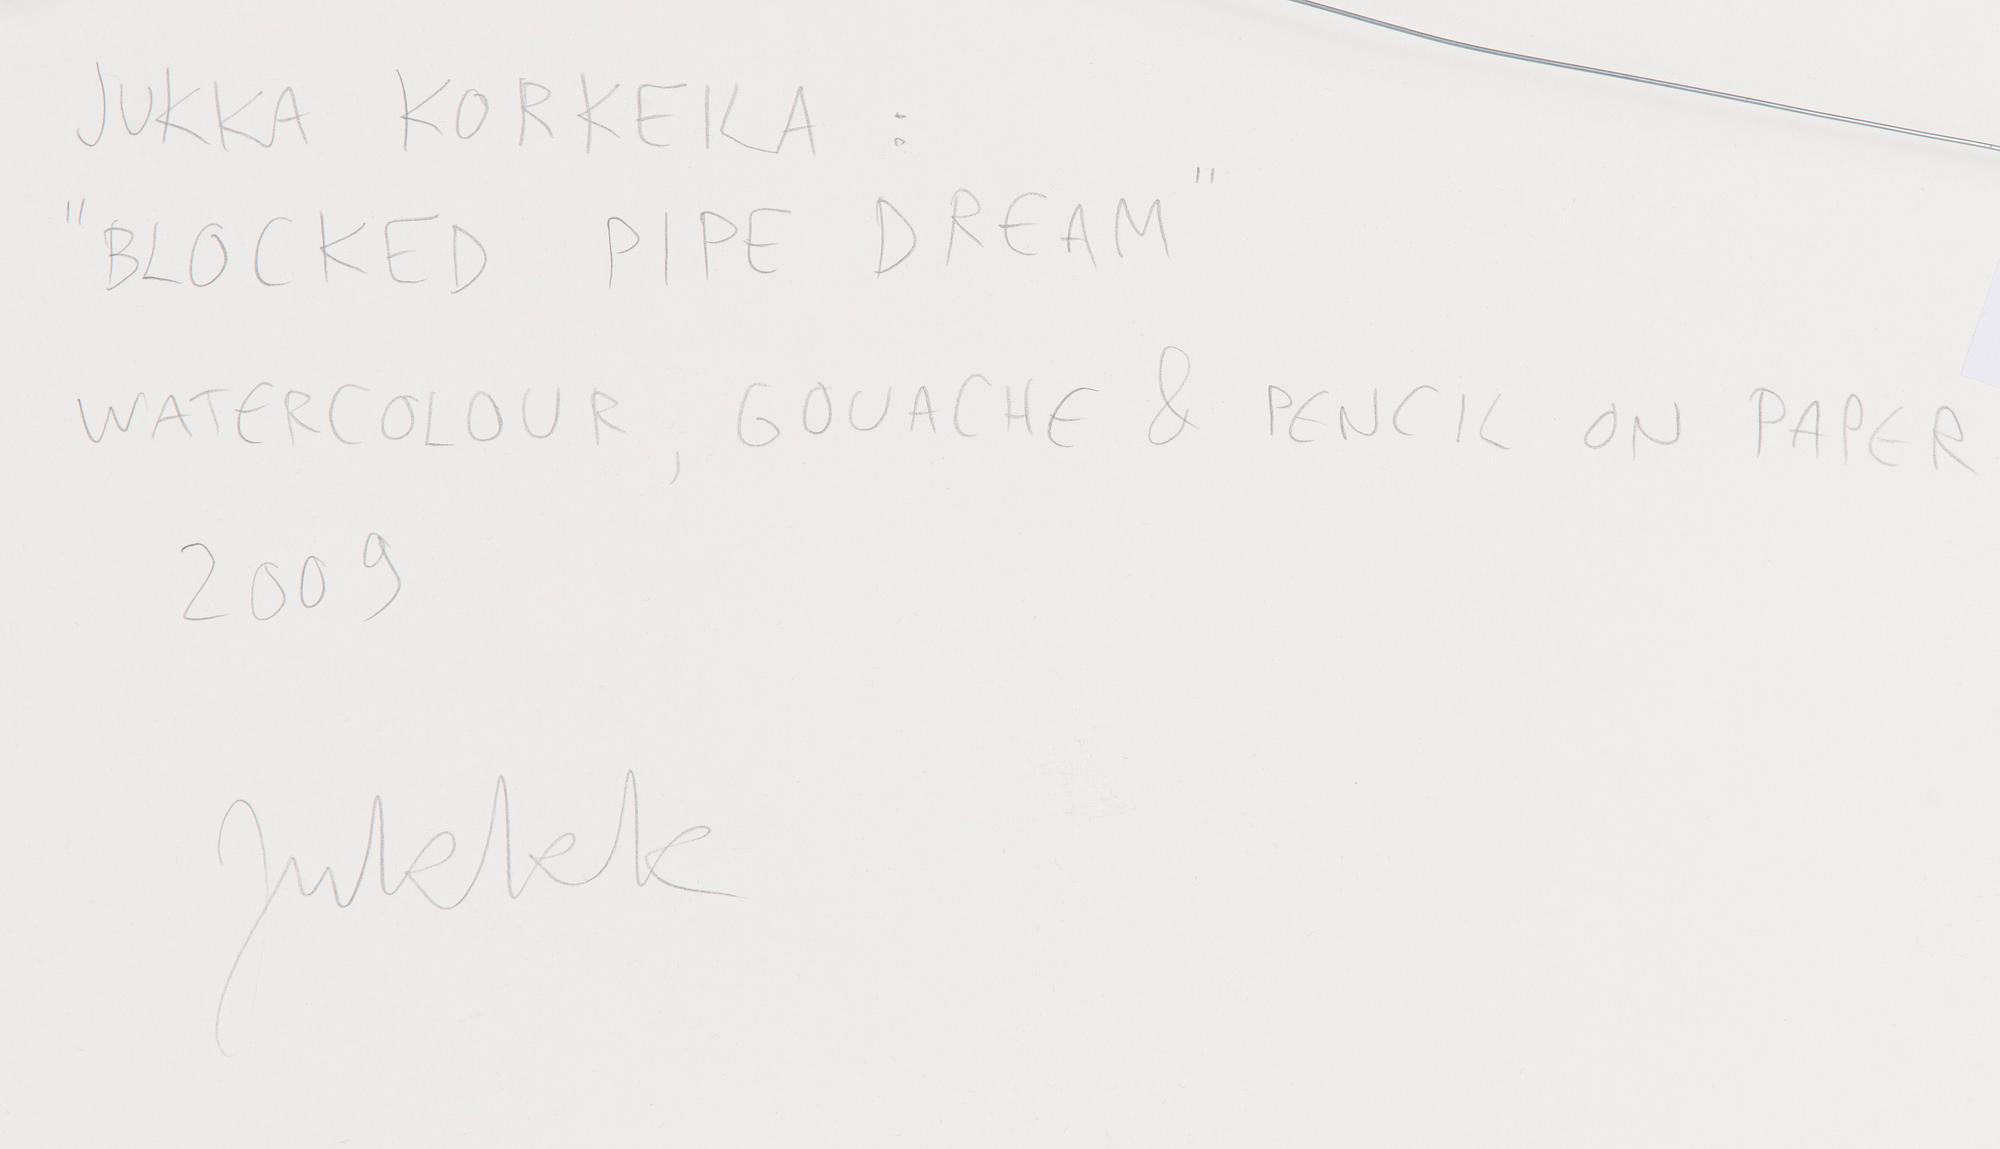 JUKKA KORKEILA :
"BLOCKED PIPE DREAM"
WATERCOLOUR, GOUACHE & PENCIL ON PAPER
2009
Jukkk